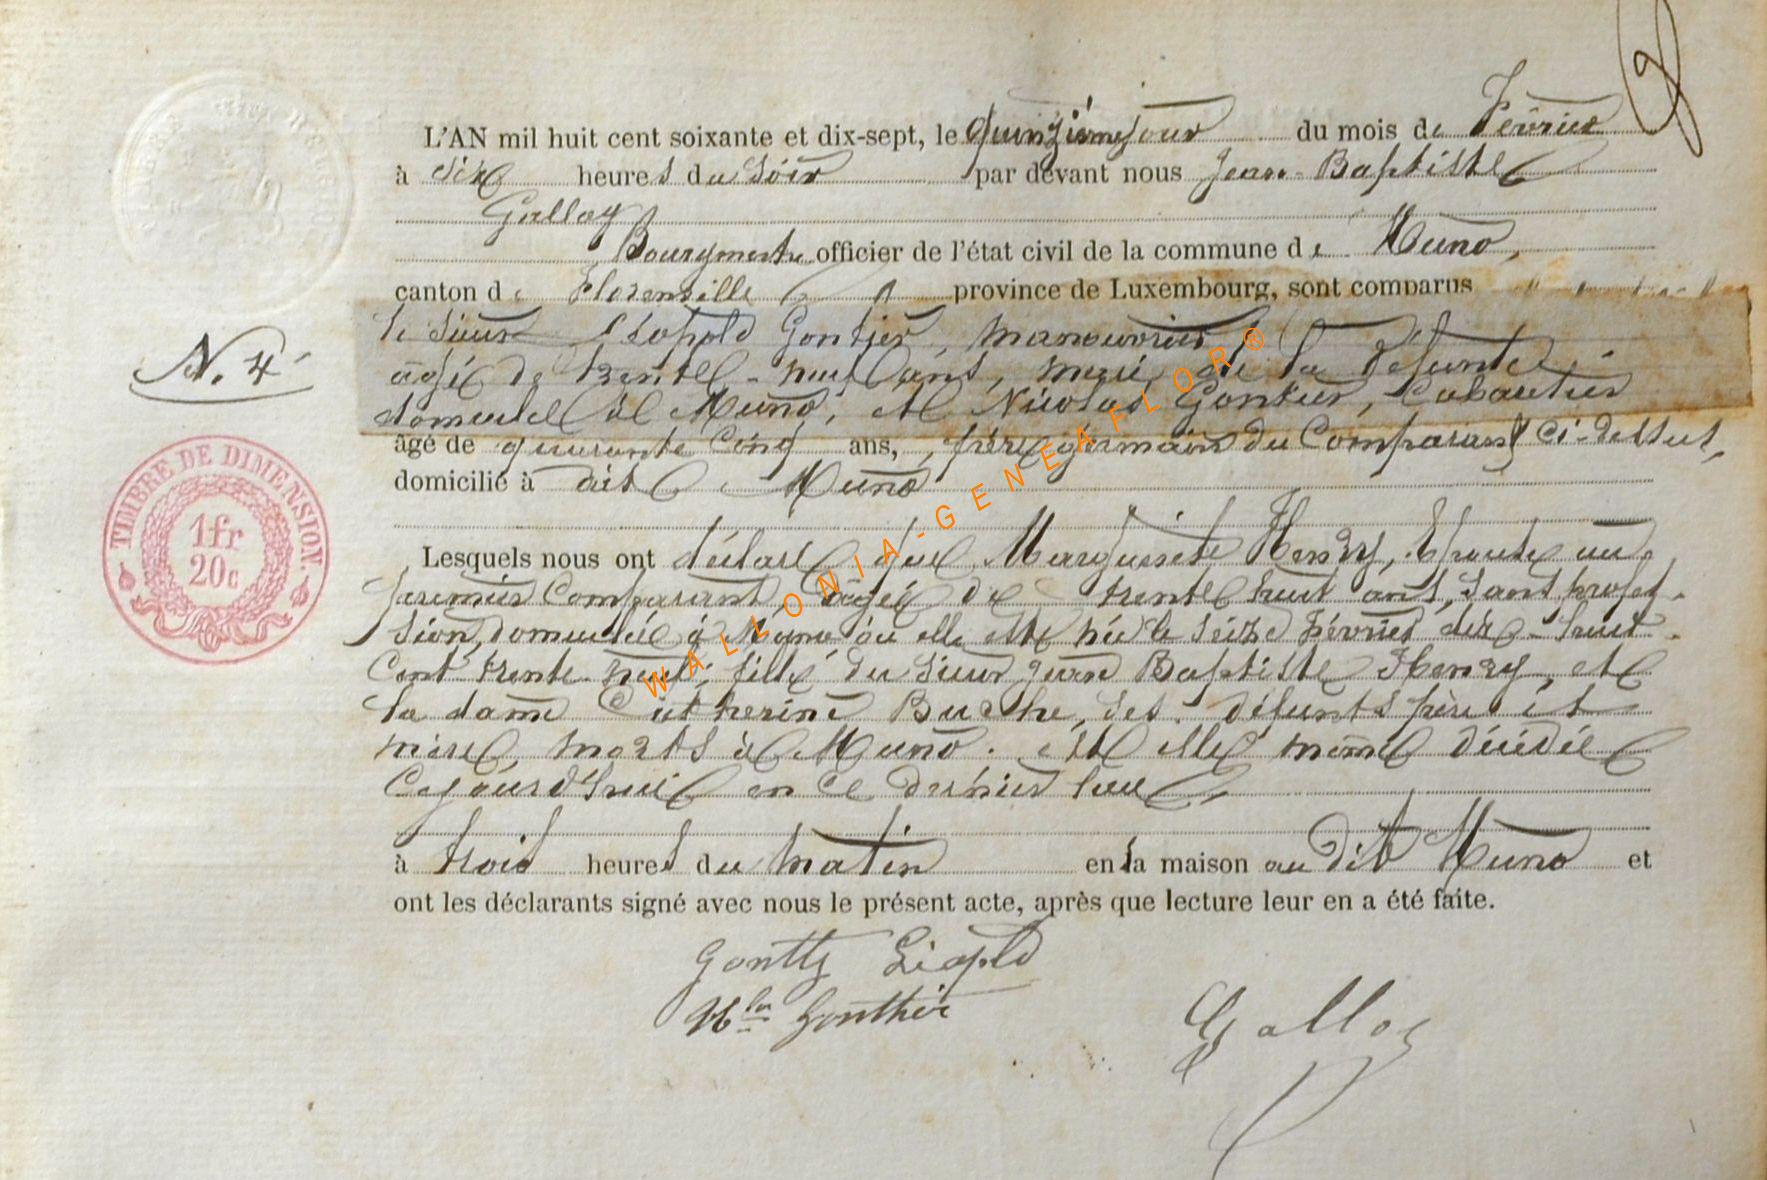 L'AN mil huit cent soixante et dix-sept, le quinzième jour du mois de Février
à six heures du Soir par devant nous Jean-Baptiste
Galloy
Bourgmestre officier de l'état civil de la commune de Muno,
canton de Florenville province de Luxembourg, sont comparus
le Sieur Léopold Gontier, manouvrier,
âgé de trente-neuf ans, mari de la défunte
domicilié à Muno, et Nicolas Gontier, Cabaretier
âgé de quarante Cinq ans, frère germain du Comparant ci-dessus,
domicilié à dit Muno
N. 4
TIMBRE DE DIMENSION.
1fr
20c
Lesquels nous ont déclaré que Marguerite Henry, Epouse au
premier Comparant, âgée de trente huit ans, sans profes-
sion, domiciliée à Muno où elle est née le seize Février dix-huit
Cent trente-neuf, fille du Sieur Jean Baptiste Henry, et
la dame Catherine Buche, ses défunts père et
mère, morts à Muno. est elle même décédée
Cejourd'hui en ce dernier lieu,
à trois heures du matin en la maison au dit Muno et
ont les déclarants signé avec nous le présent acte, après que lecture leur en a été faite.
Léopld
Nlas Gonthier
Galloy
WALLONIA-GENEAFLOR®